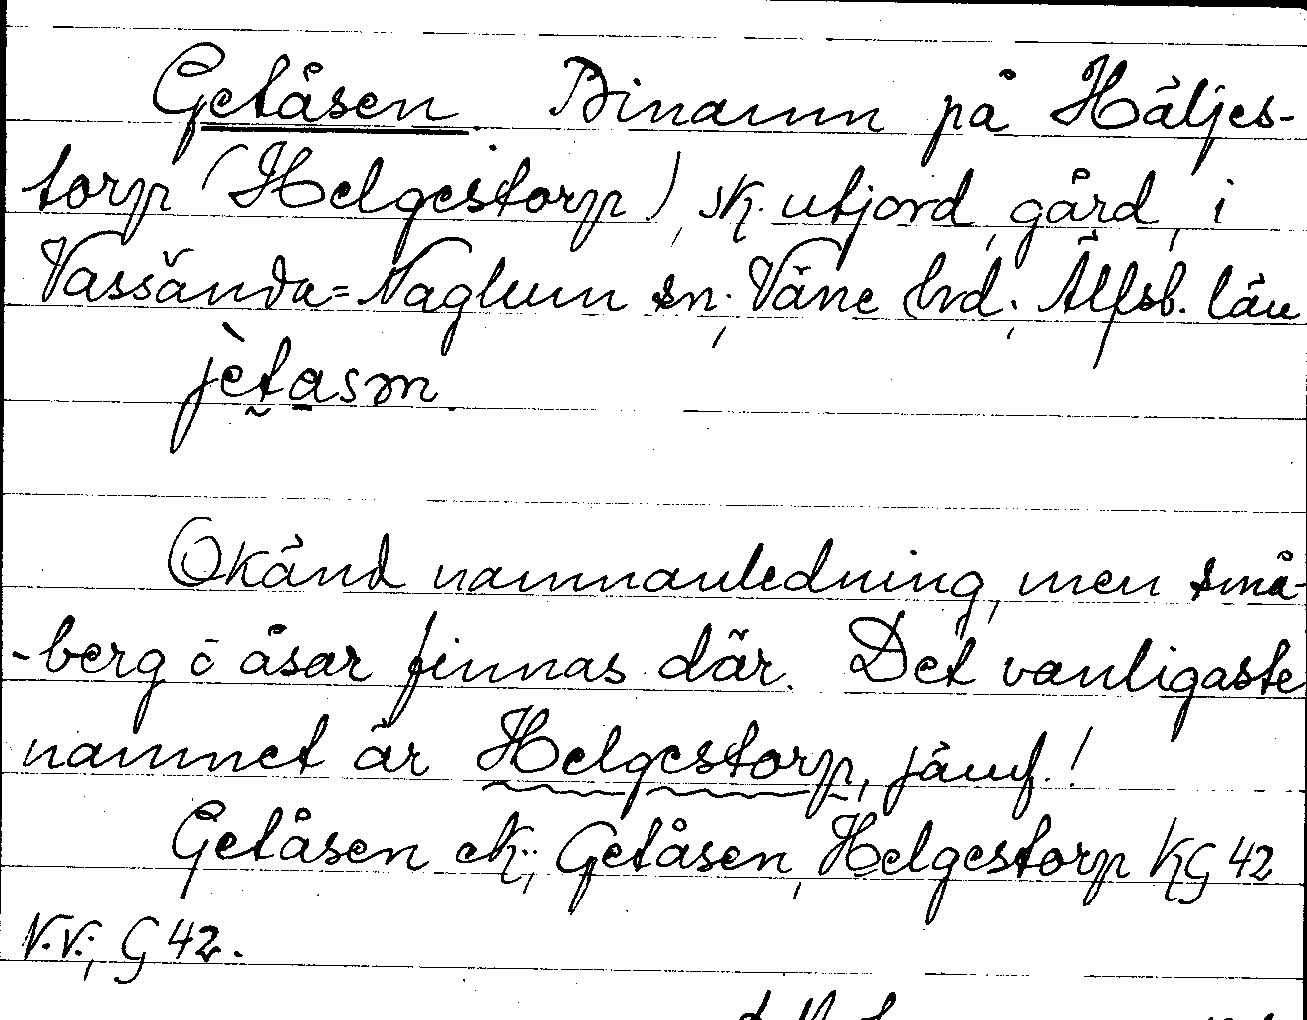 Getåsen. Binamn på Häljes-
torp (Helgestorp), sk. utjord, gård, i
Vassända=Naglum sn; Väne hd; Älfsb. län
jètasm.
Okänd namnanledning, men små-
-berg o åsar finnas där. Det vanligaste
namnet är Helgestorp, jämf.!
Getåsen ek.; Getåsen, Helgestorp KG 42
V.V.; G 42.